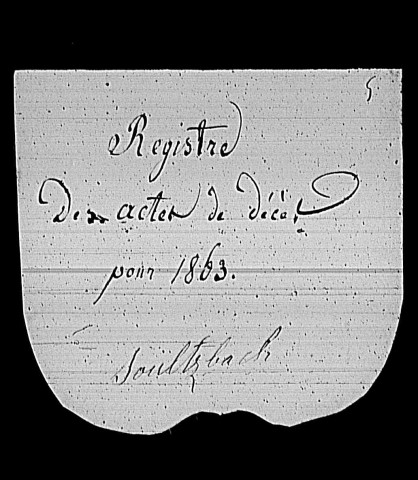 5
Registre
Des actes de décès
pour 1863.
Soultzbach